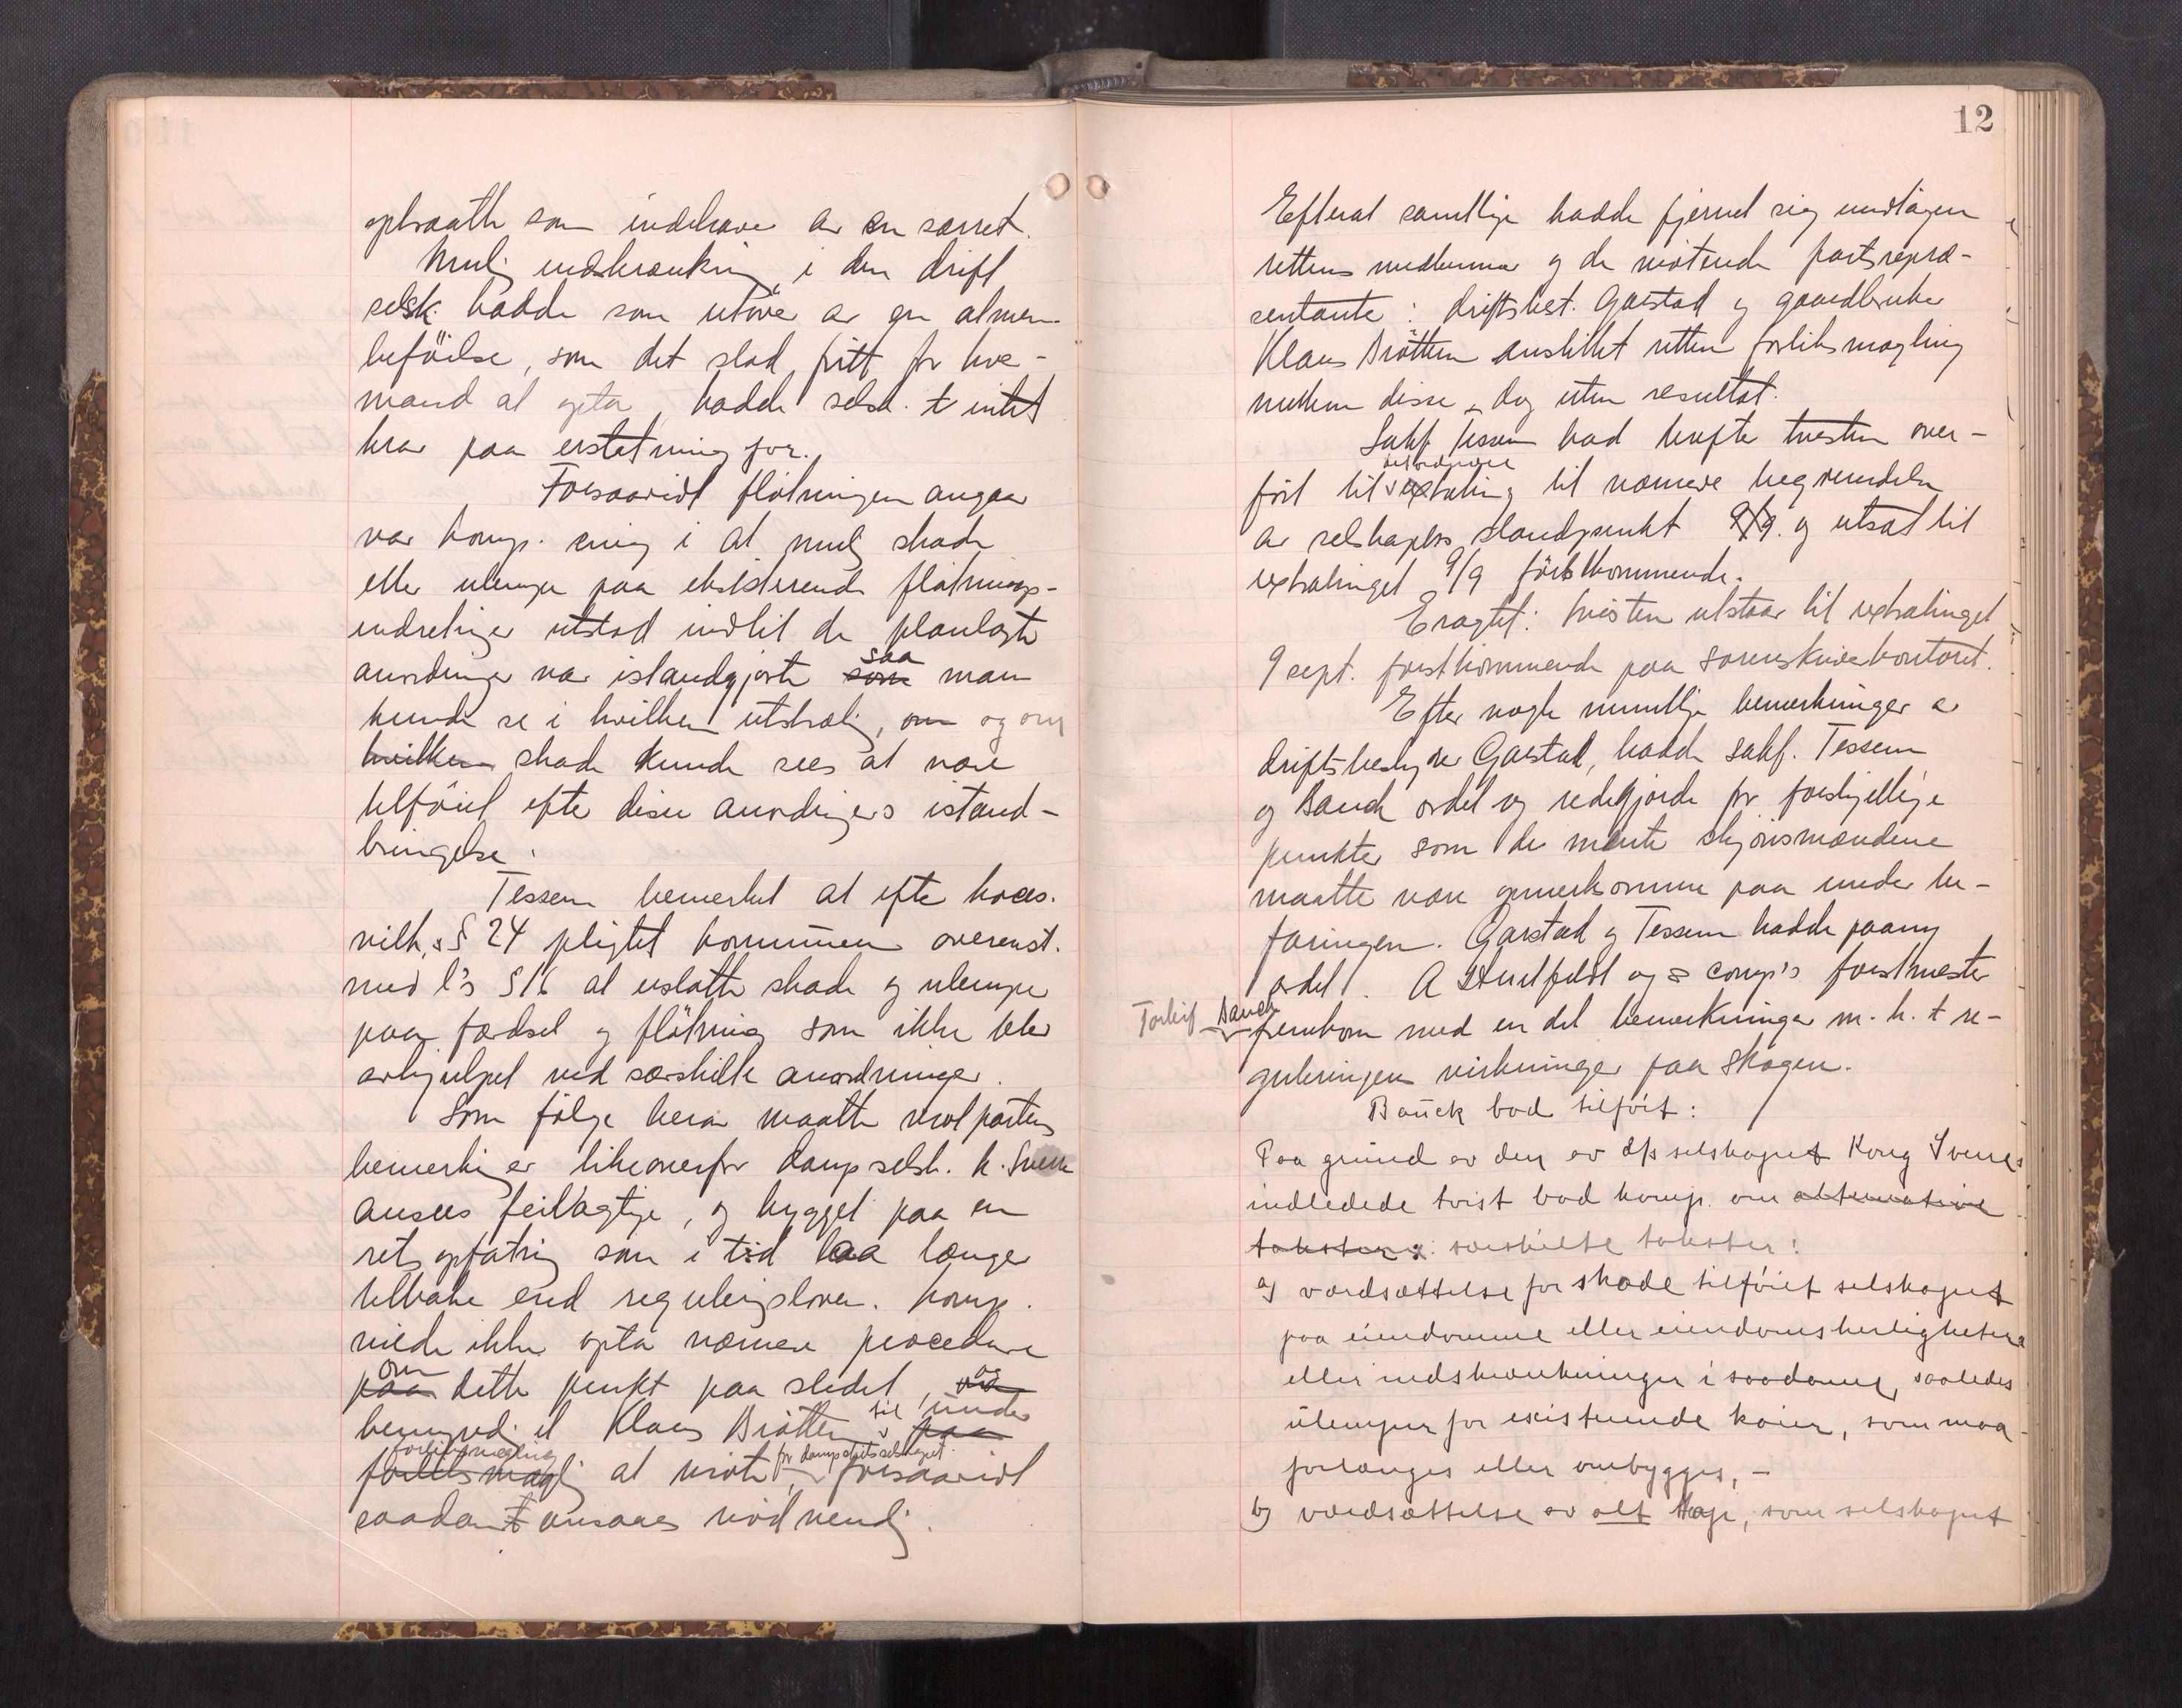 optraatte som indehaver av en særret.
Mulig indskrænkning i den drift
selsk. hadde som utöver av en almen
beföielse, som det stod fritt for hver-
mand at opta, hadde selsk. t intet
krav paa erstatning for.
Forsaavidt flötningen angaar
var komp. enig i at mulig skade
eller ulempe paa eksisterende flötnings-
indretninger utstod indtil de planlagte
anordninger var istandgjorte som saa man
kunde se i hvilken utstrækning, om og om
hvilken skade kunde sees at være
tilföiet efter disse anordningers istand-
bringelse.
Tessem bemerket at efter konces.
vilk.s § 24 pligtet kommunen overenst.
med l's § 16 at erstatte skade og ulempe
paa færdsel og flötning som ikke blev
avhjulpet ved særskilte anordninger.
Som fölge herav maatte motpartens
bemerkninger likeoverfor dampselsk. k. Sverre
ansees feilagtige, og bygget paa en
rets opfatning som i tid laa længer
tilbake end reguleringsloven. Komp.
vilde ikke opta nærmere procedure
paa om dette punkt paa stedet, og
bemyndiget Klaus Bröttem til under paa
forliksmægling forliksmægling at möte for dampskibsselskapet, forsaavidt
saadant ansaaes nödvendig.
12
Efterat samtlige hadde fjernet sig undtagen
rettens medlemmer og de mötende partsrepræ-
sentanter: driftsbest. Garstad og gaardbruker
Klaus Bröttem anstillet retten forliksmægling
mellem disse, dog uten resultat.
Sakf. Tessem bad derefter tvisten over-
fört til extrating til nærmere begrundelse
av selskapets standpunkt 9/9. og utsat til
extratinget 9/9 förstkommende.
Eragtet: Tvisten utstaar til extratinget
9 sept. förstkommende paa sorenskriverkontoret.
Efter nogle mundtlige bemerkninger av
driftsbestyrer Garstad, hadde sakf. Tessem
og Bauck ordet og redegjorde for forskjellige
punkter som de mente skjönsmændene
maatte være opmerksomme paa under be-
faringen. Garstad og Tessem hadde paany
ordet. A Huitfeldt og comp's forstmester
Torleif Bauck fremkom med en del bemerkninger m. h. t re-
guleringens virkninger paa skogen.
Bauck bad tilfört:
Paa grund av den av D/s selskapet Kong Sverres
indledede tvist bad komp. om alternative
takster: særskilte takster:
a) værdsættelse for skade tilföiet selskapet
paa eiendomme eller eiendomsherligheter
eller indskrænkninger i saadanne, saaledes
ulemper for existerende kaier, som maa
forlænges eller ombygges, –
b) værdsættelse av alt tap, som selskapet